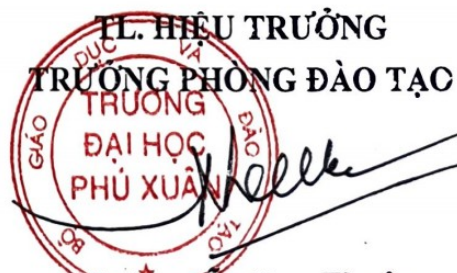 TL. HIỆU TRƯỞNG
TRƯỞNG PHÒNG ĐÀO TẠO
BỘ GIÁO DỤC VÀ ĐÀO TẠO
TRƯỜNG
ĐẠI HỌC
PHÚ XUÂN